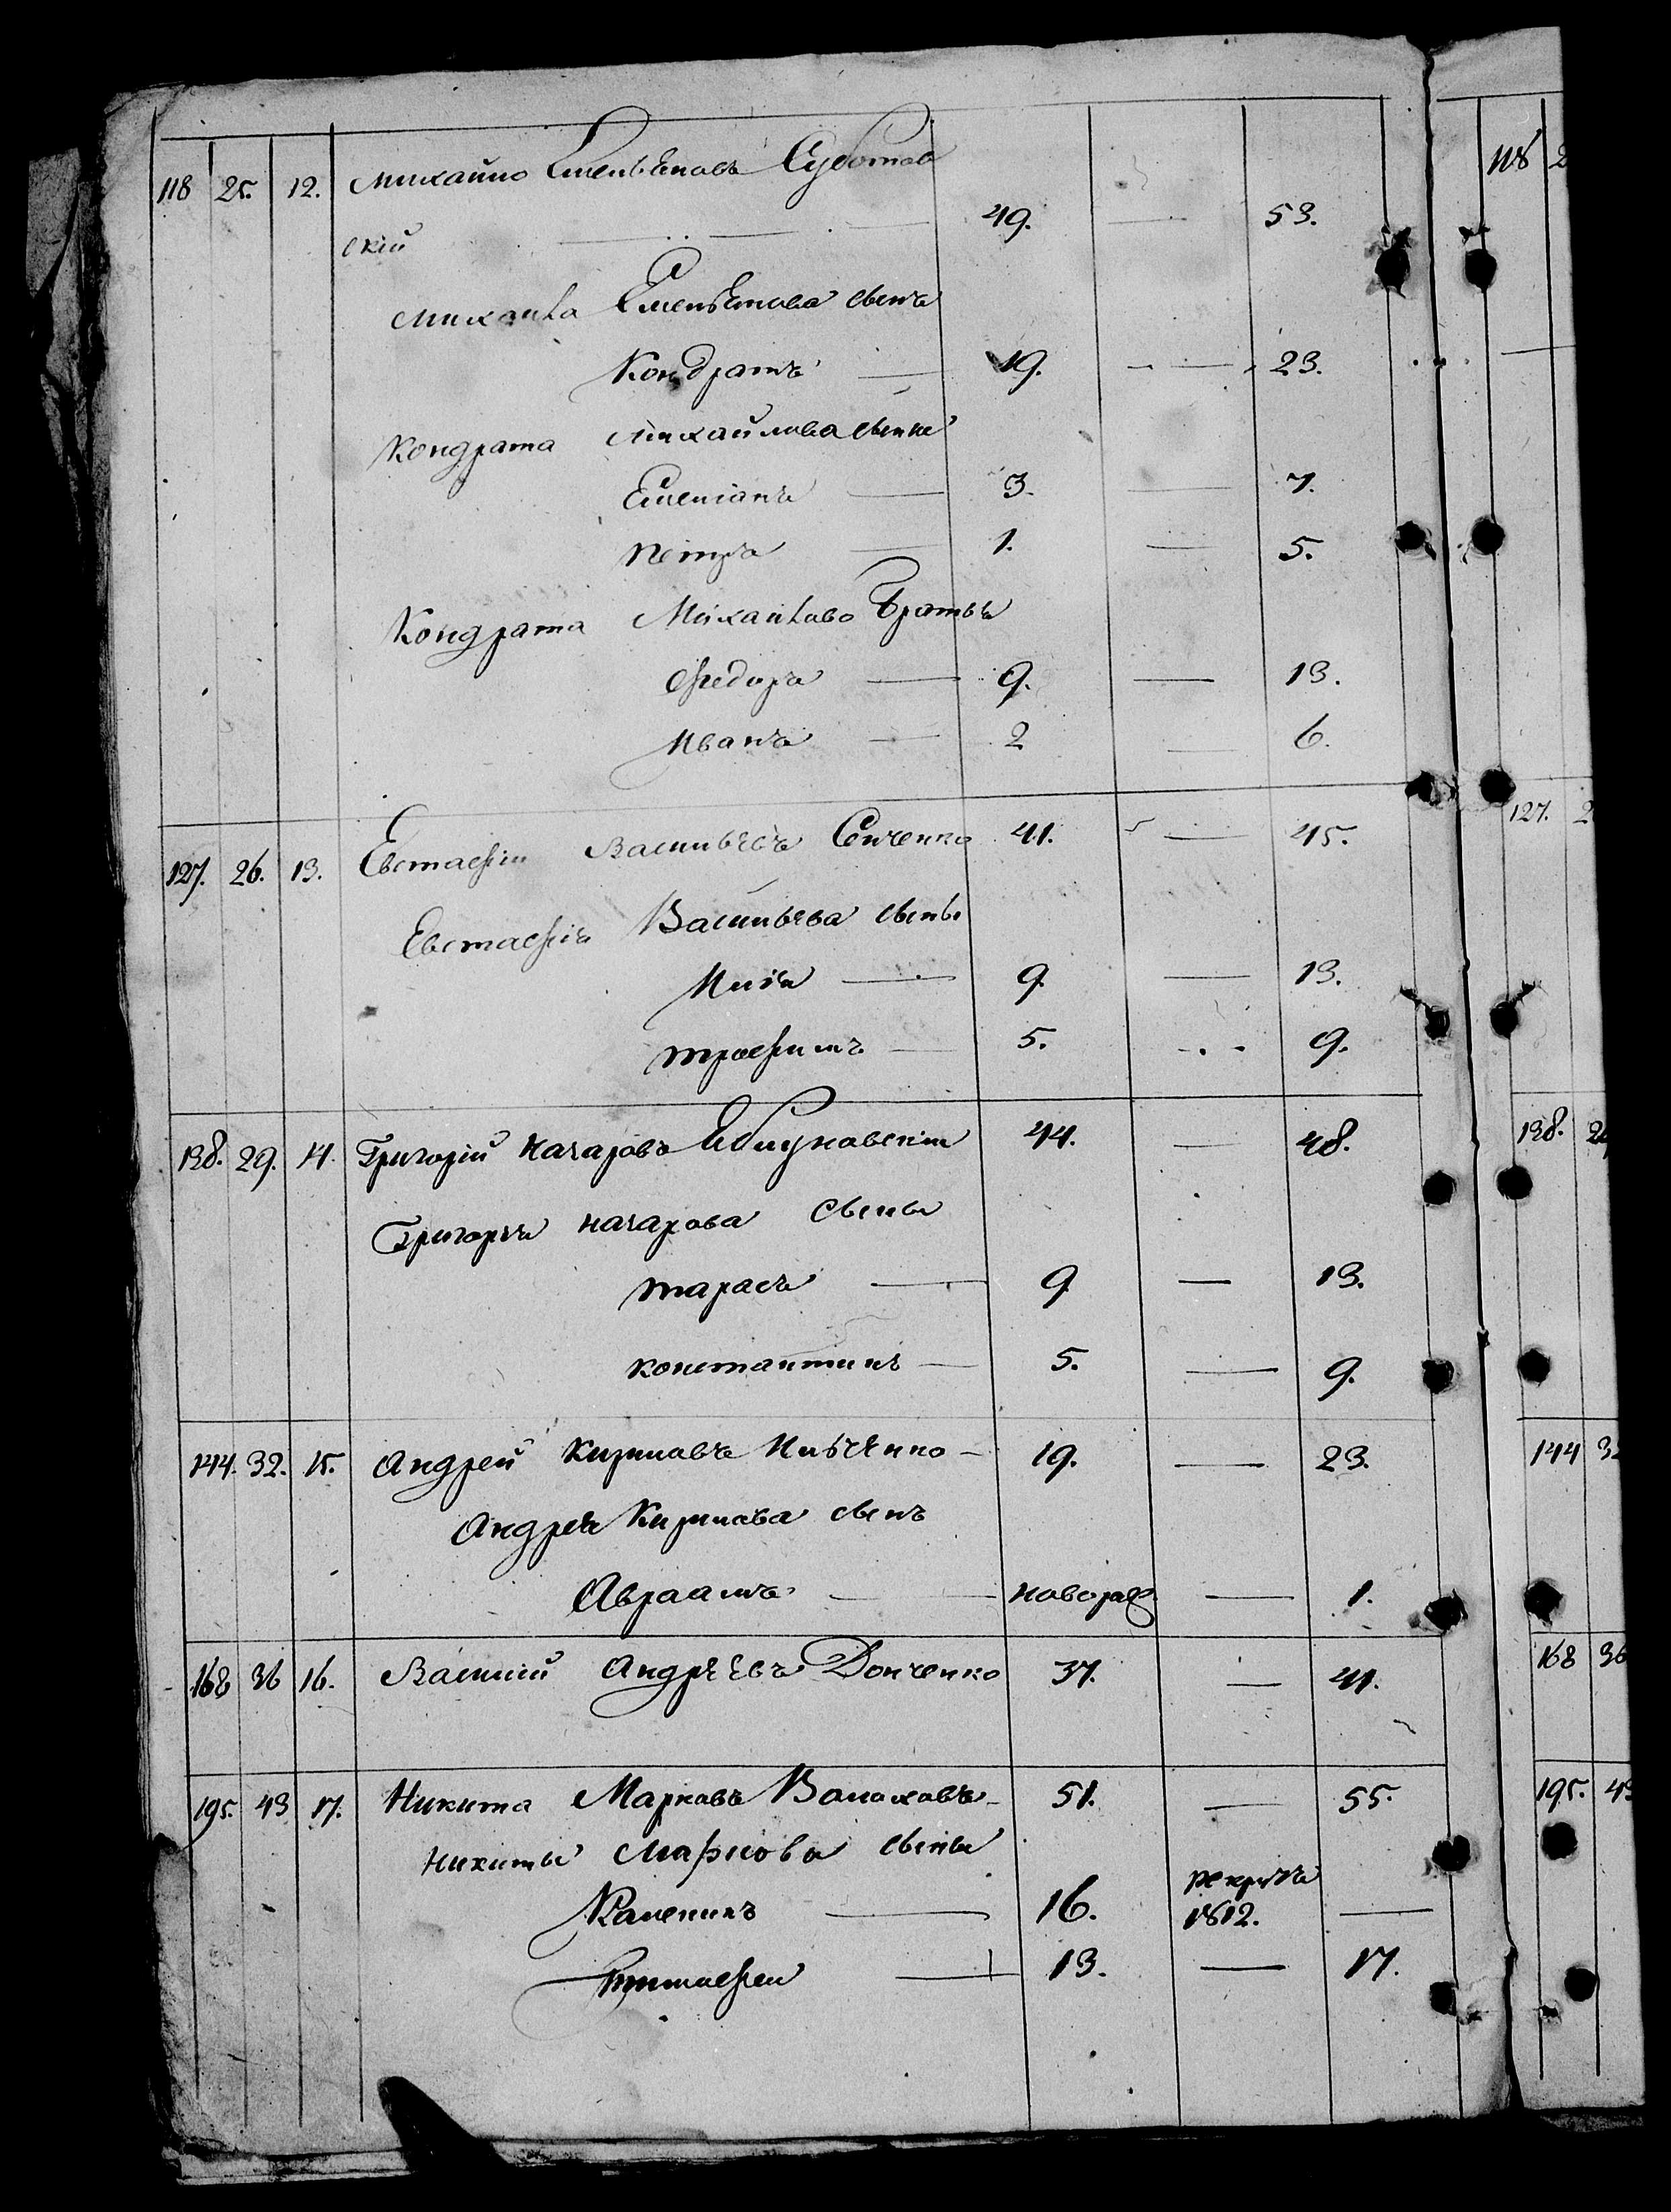 118 25. 12. Михайло Емельяновъ Субботов
скій 49. — 53.
Михайла Емельянова сынъ
Кондратъ — 19. — 23.
Кондрата Михайлова сыны
Емеліанъ — 3. — 7.
Петръ — 1. — 5.
Кондрата Михайлова Братья
Федоръ — 9. — 13.
Иванъ — 2 — 6.
127. 26. 13. Евстафій Васильевъ Сенченко 41. — 45.
Евстафія Васильева сыны
Илія — 9. — 13.
Трофимъ — 5. — 9.
138. 29. 14. Григорій Назаровъ 44. — 48.
Григорія Назарова Сыны
Тарасъ — 9 — 13.
Константинъ — 5. — 9.
144. 32. 15. Андрей Кириловъ Ильченко — 19. — 23.
Андрея Кирилова сынъ
Авраамъ — новорож. — 1.
168 36 16. Василій Андреевъ Донченко 37. — 41.
195. 43 17. Никита Марковъ Волоховъ — 51. — 55.
Никиты Маркова сыны
Каленикъ — 16. рекрутъ 1812. —
Тимофей — 13. — 17.
118 2
127. 2
138. 29
144 32
168 36
195. 43